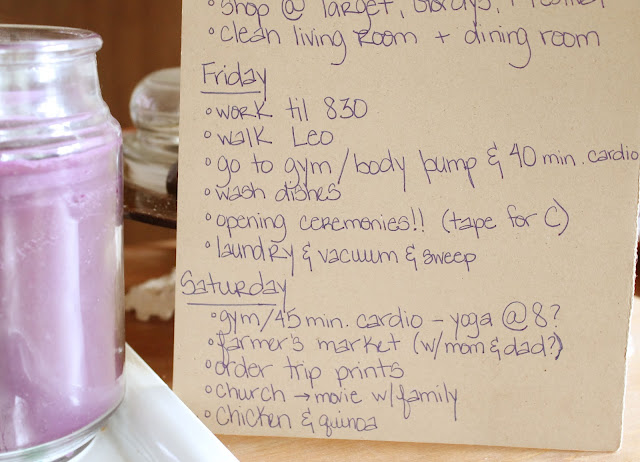 • Shop @ Target,
• clean living room + dining room
Friday
• work til 830
• walk Leo
• go to gym/body pump & 40 min. cardio
• wash dishes
• opening ceremonies!! (tape for C)
• laundry & vacuum & sweep
Saturday
• gym/45 min. cardio – yoga @ 8?
• farmer's market (w/mom & dad?)
• order trip prints
• church → movie w/family
• chicken & quinoa